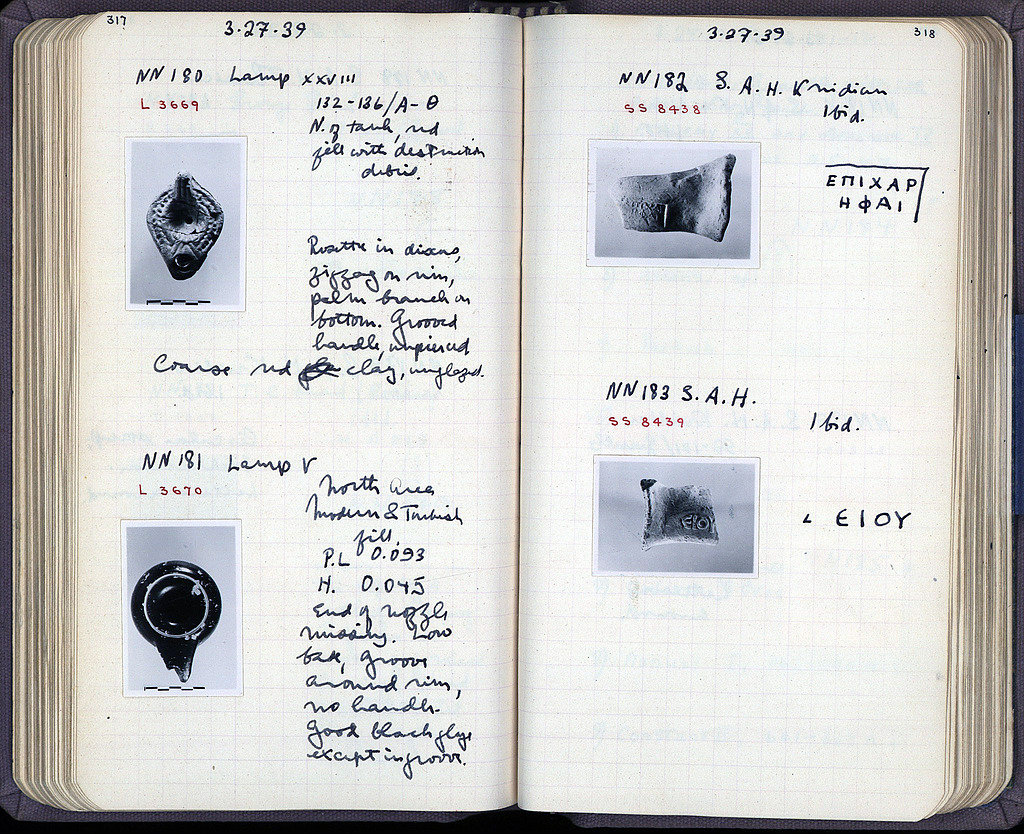 317
3·27·39
NN 180 Lamp XXVIII
L 3669
132-136/A-Θ
N. of tank, red
fill with destruction
debris.
Rosette in discus,
zigzag on rim,
palm branch on
bottom. Grooved
handle, unpierced
Coarse red clay, unglazed.
NN 181 Lamp V
L 3670
North Area
Modern & Turkish
fill.
P.L 0.093
H. 0.045
End of nozzle
missing. Low
base, groove
around rim,
no handle.
Good black glaze
except in groove.
3·27·39
318
NN 182 S. A. H. Knidian
SS 8438
Ibid.
ΕΠΙΧΑΡ
ΗΦΑΙ
NN 183 S. A. H.
SS 8439
Ibid.
ΕΙΟΥ